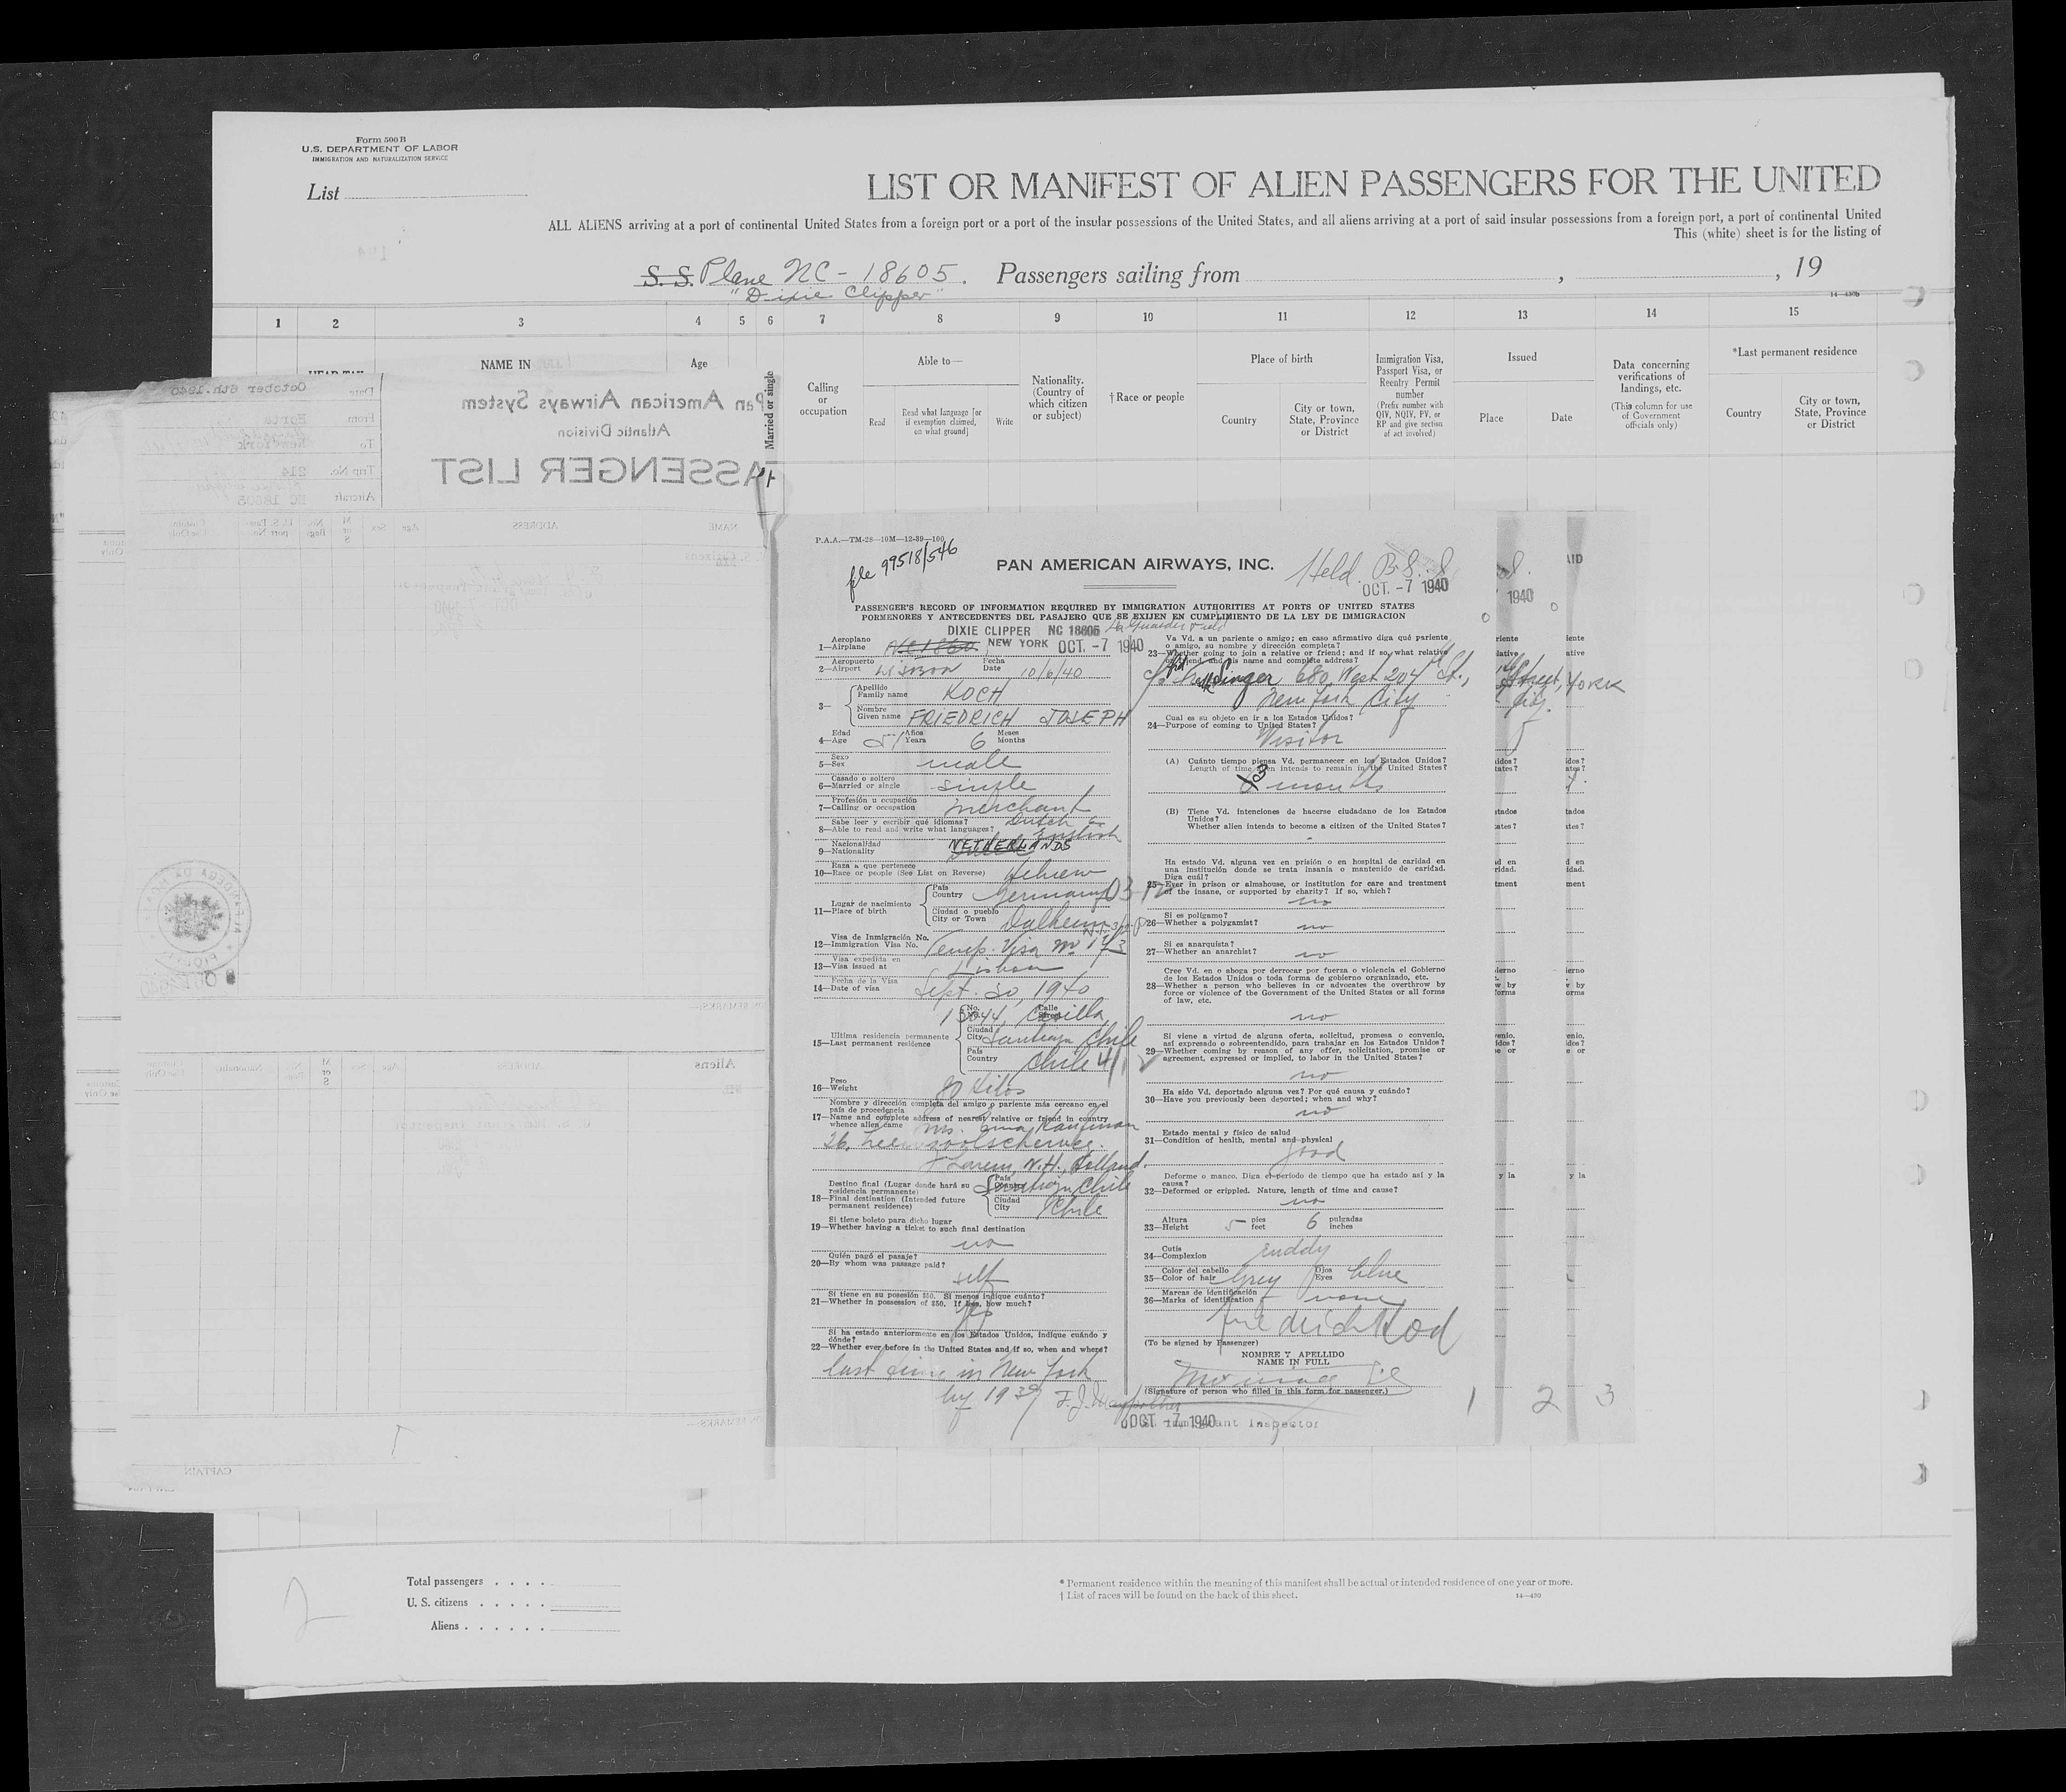 Form 500 B
U.S. DEPARTMENT OF LABOR
IMMIGRATION AND NATURALIZATION SERVICE
List
LIST OR MANIFEST OF ALIEN PASSENGERS FOR THE UNITED
ALL ALIENS arriving at a port of continental United States from a foreign port or a port of the insular possessions of the United States, and all aliens arriving at a port of said insular possessions from a foreign port, a port of continental United
This (white) sheet is for the listing of
S. S. Plane NC-18605. Passengers sailing from , , 19
"Dixie Clipper"
14-430b
1 2 3 4 5 6 7 8 9 10 11 12 13 14 15
HEAD-TAX
NAME IN
Age
Married or single
Calling or occupation
Able to—
Read
Read what language [or if exemption claimed, on what ground]
Write
Nationality. (Country of which citizen or subject)
† Race or people
Place of birth
Country
City or town, State, Province or District
Immigration Visa, Passport Visa, or Reentry Permit number
(Prefix number with QIV, NQIV, PV, or RP and give section of act involved)
Issued
Place
Date
Data concerning verifications of landings, etc.
(This column for use of Government officials only)
*Last permanent residence
Country
City or town, State, Province or District
Pan American Airways System
Atlantic Division
PASSENGER LIST
Date October 6th.1940
From Horta
To New York
Trip No. 214
Aircraft NC 18605
NAME
ADDRESS
Age
Sex
M or S
No. Bags
U. S. Pass-port No.
Customs Use Only
Aliens
ADDRESS
Age
Sex
M or S
No. Bags
Nationality
Customs Use Only
CAPTAIN
P.A.A.—TM-28—10M—12-39—100
file 99518/546
PAN AMERICAN AIRWAYS, INC.
Held. B.S.I
OCT. -7 1940
PASSENGER'S RECORD OF INFORMATION REQUIRED BY IMMIGRATION AUTHORITIES AT PORTS OF UNITED STATES
PORMENORES Y ANTECEDENTES DEL PASAJERO QUE SE EXIJEN EN CUMPLIMIENTO DE LA LEY DE IMMIGRACION
DIXIE CLIPPER NC 18605 La Guardia Field
Aeroplano
1—Airplane NEW YORK OCT. -7 1940
Aeropuerto Fecha
2—Airport Lisbon Date 10/6/40
3— Apellido
Family name KOCH
Nombre
Given name FRIEDRICH JOSEPH
Edad Años Meses
4—Age 51 Years 6 Months
Sexo
5—Sex male
Casado o soltero
6—Married or single single
Profesión u ocupación
7—Calling or occupation merchant
Sabe leer y escribir qué idiomas? Dutch &
8—Able to read and write what languages? English
Nacionalidad
9—Nationality NETHERLANDS
Raza a que pertenece
10—Race or people (See List on Reverse) Hebrew
Lugar de nacimiento
11—Place of birth
País
Country Germany
Ciudad o pueblo
City or Town Dalheim
Visa de Inmigración No.
12—Immigration Visa No. Temp. Visa No 173
Visa expedida en
13—Visa issued at Lisbon
Fecha de la Visa
14—Date of visa Sept. 30, 1940
Ultima residencia permanente
15—Last permanent residence
No. Calle 13044, Casilla
Ciudad
City Santiago Chile
País
Country Chile
Peso
16—Weight 80 kilos
Nombre y dirección completa del amigo o pariente más cercano en el
país de procedencia
17—Name and complete address of nearest relative or friend in country
whence alien came Mrs. Kaufman
Laren, N.H., Holland.
Destino final (Lugar donde hará su
residencia permanente)
18—Final destination (Intended future
permanent residence)
País
Country Santiago Chile
Ciudad
City Chile
Si tiene boleto para dicho lugar
19—Whether having a ticket to such final destination
no
Quién pagó el pasaje?
20—By whom was passage paid?
self
Si tiene en su posesión $50. Si menos indique cuánto?
21—Whether in possession of $50. If less, how much?
yes
Si ha estado anteriormente en los Estados Unidos, indique cuándo y
dónde?
22—Whether ever before in the United States and if so, when and where?
last time in New York
by 1937
Va Vd. a un pariente o amigo; en caso afirmativo diga qué pariente
o amigo, su nombre y dirección completa?
23—Whether going to join a relative or friend; and if so, what relative
or friend, and his name and complete address?
Singer 680 West 204th St.,
New York City
Cual es su objeto en ir a los Estados Unidos?
24—Purpose of coming to United States?
Visitor
(A) Cuánto tiempo piensa Vd. permanecer en los Estados Unidos?
Length of time alien intends to remain in the United States?
3 months
(B) Tiene Vd. intenciones de hacerse ciudadano de los Estados
Unidos?
Whether alien intends to become a citizen of the United States?
Ha estado Vd. alguna vez en prisión o en hospital de caridad en
una institución donde se trata insania o mantenido de caridad.
Diga cuál?
25—Ever in prison or almshouse, or institution for care and treatment
of the insane, or supported by charity? If so, which?
no
Si es polígamo?
26—Whether a polygamist?
no
Si es anarquista?
27—Whether an anarchist?
no
Cree Vd. en o aboga por derrocar por fuerza o violencia el Gobierno
de los Estados Unidos o toda forma de gobierno organizado, etc.
28—Whether a person who believes in or advocates the overthrow by
force or violence of the Government of the United States or all forms
of law, etc.
no
Si viene a virtud de alguna oferta, solicitud, promesa o convenio,
así expresado o sobreentendido, para trabajar en los Estados Unidos?
29—Whether coming by reason of any offer, solicitation, promise or
agreement, expressed or implied, to labor in the United States?
no
Ha sido Vd. deportado alguna vez? Por qué causa y cuándo?
30—Have you previously been deported; when and why?
no
Estado mental y físico de salud
31—Condition of health, mental and physical
good
Deforme o manco. Diga el período de tiempo que ha estado así y la
causa?
32—Deformed or crippled. Nature, length of time and cause?
no
Altura pies pulgadas
33—Height 5 feet 6 inches
Cutis
34—Complexion ruddy
Color del cabello Ojos
35—Color of hair Grey Eyes blue
Marcas de identificación
36—Marks of identification none
Friedrich Koch
(To be signed by Passenger)
NOMBRE Y APELLIDO
NAME IN FULL
(Signature of person who filled in this form for passenger.)
OCT -7 1940
Immigrant Inspector
1 2 3
2
Total passengers . . . .
U. S. citizens . . . . .
Aliens . . . . . .
* Permanent residence within the meaning of this manifest shall be actual or intended residence of one year or more.
† List of races will be found on the back of this sheet.
14—430